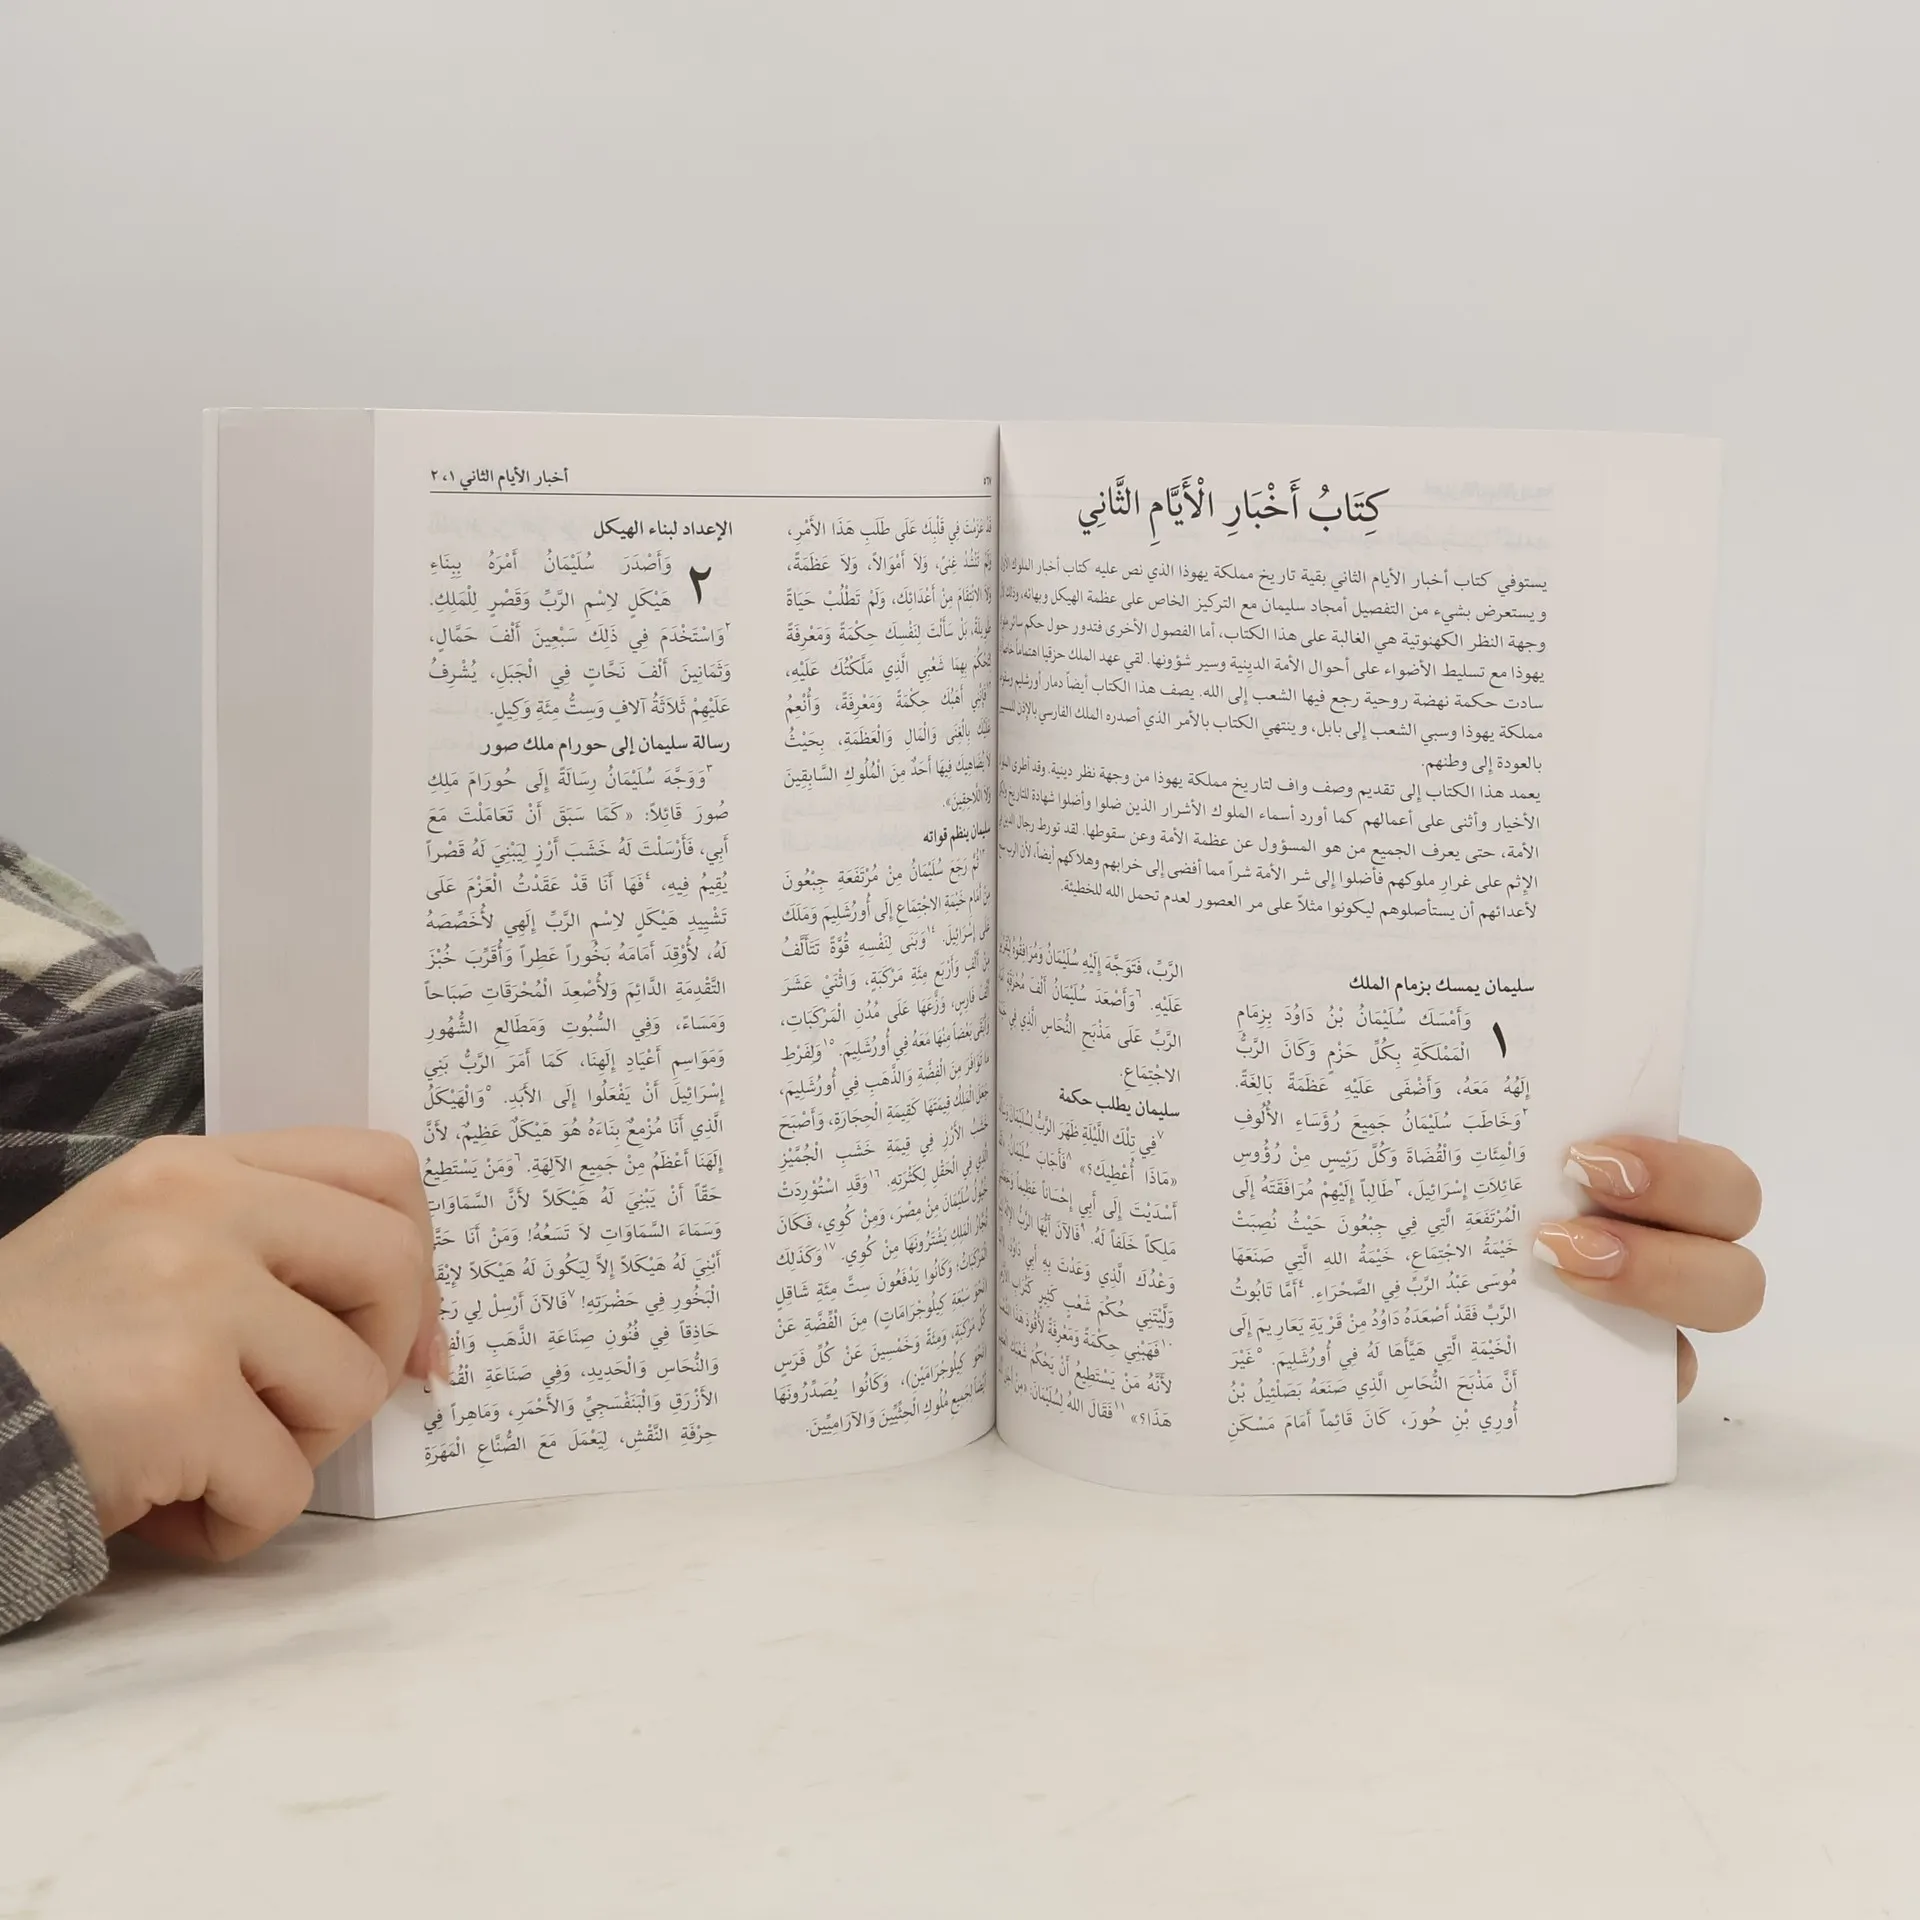 كِتَابُ أَخْبَارِ الْأَيَّامِ الثَّانِي
يستوفي كتاب أخبار الأيام الثاني بقية تاريخ مملكة يهوذا الذي نص عليه كتاب أخبار الملوك
ويستعرض بشيء من التفصيل أمجاد سليمان مع التركيز الخاص على عظمة الهيكل وبهائه،
وجهة النظر الكهنوتية هي الغالبة على هذا الكتاب، أما الفصول الأخرى فتدور حول حكم سائر
يهوذا مع تسليط الأضواء على أحوال الأمة الدينية وسير شؤونها. لقي عهد الملك حزقيا اهتماماً
سادت حكمة نهضة روحية رجع فيها الشعب إلى الله. يصف هذا الكتاب أيضاً دمار أورشليم
مملكة يهوذا وسبي الشعب إلى بابل، وينتهي الكتاب بالأمر الذي أصدره الملك الفارسي بالإذن
بالعودة إلى وطنهم.
يعمد هذا الكتاب إلى تقديم وصف واف لتاريخ مملكة يهوذا من وجهة نظر دينية. وقد أطرى
الأخيار وأثنى على أعمالهم كما أورد أسماء الملوك الأشرار الذين ضلوا وأضلوا شهادة للتاريخ
الأمة، حتى يعرف الجميع من هو المسؤول عن عظمة الأمة وعن سقوطها. لقد تورط رجال
الإثم على غرار ملوكهم فأضلوا إلى شر الأمة شراً مما أفضى إلى خرابهم وهلاكهم أيضاً، لأن الرب
لأعدائهم أن يستأصلوهم ليكونوا مثلاً على مر العصور لعدم تحمل الله للخطيئة.
سليمان يمسك بزمام الملك
١ وَأَمْسَكَ سُلَيْمَانُ بْنُ دَاوُدَ بِزِمَامِ
الْمَمْلَكَةِ بِكُلِّ حَزْمٍ وَكَانَ الرَّبُّ
إِلَهُهُ مَعَهُ، وَأَضْفَى عَلَيْهِ عَظَمَةً بَالِغَةً.
٢وَخَاطَبَ سُلَيْمَانُ جَمِيعَ رُؤَسَاءِ الأُلُوفِ
وَالْمِئَاتِ وَالْقُضَاةَ وَكُلَّ رَئِيسٍ مِنْ رُؤُوسِ
عَائِلاَتِ إِسْرَائِيلَ، ٣طَالِباً إِلَيْهِمْ مُرَافَقَتَهُ إِلَى
الْمُرْتَفَعَةِ الَّتِي فِي جِبْعُونَ حَيْثُ نُصِبَتْ
خَيْمَةُ الاجْتِمَاعِ، خَيْمَةُ اللهِ الَّتِي صَنَعَهَا
مُوسَى عَبْدُ الرَّبِّ فِي الصَّحْرَاءِ. ٤أَمَّا تَابُوتُ
الرَّبِّ فَقَدْ أَصْعَدَهُ دَاوُدُ مِنْ قَرْيَةِ يَعَارِيمَ إِلَى
الْخَيْمَةِ الَّتِي هَيَّأَهَا لَهُ فِي أُورُشَلِيمَ. ٥غَيْرَ
أَنَّ مَذْبَحَ النُّحَاسِ الَّذِي صَنَعَهُ بَصَلْئِيلُ بْنُ
أُورِي بْنِ حُورَ، كَانَ قَائِماً أَمَامَ مَسْكَنِ
الرَّبِّ، فَتَوَجَّهَ إِلَيْهِ سُلَيْمَانُ وَمُرَافِقُوهُ
عَلَيْهِ. ٦وَأَصْعَدَ سُلَيْمَانُ أَلْفَ مُحْرَقَةٍ
الرَّبِّ عَلَى مَذْبَحِ النُّحَاسِ الَّذِي فِي
الاجْتِمَاعِ.
سليمان يطلب حكمة
٧فِي تِلْكَ اللَّيْلَةِ ظَهَرَ الرَّبُّ لِسُلَيْمَانَ
«مَاذَا أُعْطِيكَ؟» ٨فَأَجَابَ سُلَيْمَانُ:
أَسْدَيْتَ إِلَى أَبِي إِحْسَاناً عَظِيماً
مَلِكاً خَلَفاً لَهُ. ٩فَالآنَ أَيُّهَا الرَّبُّ الإِلَهُ
وَعْدُكَ الَّذِي وَعَدْتَ بِهِ أَبِي دَاوُدَ،
وَلَّيْتَنِي حُكْمَ شَعْبٍ كَثِيرٍ كَتُرَابِ
١٠فَهَبْنِي حِكْمَةً وَمَعْرِفَةً لأَقُودَ هَذَا
لأَنَّهُ مَنْ يَسْتَطِيعُ أَنْ يَحْكُمَ شَعْبَكَ
هَذَا؟» ١١فَقَالَ اللهُ لِسُلَيْمَانَ: «مِنْ
أخبار الأيام الثاني ١، ٢
قَدْ عَزَمْتَ فِي قَلْبِكَ عَلَى طَلَبِ هَذَا الأَمْرِ،
وَلَمْ تَنْشُدْ غِنىً، وَلاَ أَمْوَالاً، وَلاَ عَظَمَةً،
وَلاَ الانْتِقَامَ مِنْ أَعْدَائِكَ، وَلَمْ تَطْلُبْ حَيَاةً
طَوِيلَةً، بَلْ سَأَلْتَ لِنَفْسِكَ حِكْمَةً وَمَعْرِفَةً
لِتَحْكُمَ بِهِمَا شَعْبِي الَّذِي مَلَّكْتُكَ عَلَيْهِ،
١٢فَإِنِّي أَهَبُكَ حِكْمَةً وَمَعْرِفَةً، وَأُنْعِمُ
عَلَيْكَ بِالْغِنَى وَالْمَالِ وَالْعَظَمَةِ، بِحَيْثُ
لاَ يُضَاهِيكَ فِيهَا أَحَدٌ مِنَ الْمُلُوكِ السَّابِقِينَ
وَلاَ اللَّاحِقِينَ».
سليمان ينظم قواته
١٣ثُمَّ رَجَعَ سُلَيْمَانُ مِنْ مُرْتَفَعَةِ جِبْعُونَ
مِنْ أَمَامِ خَيْمَةِ الاجْتِمَاعِ إِلَى أُورُشَلِيمَ وَمَلَكَ
عَلَى إِسْرَائِيلَ. ١٤وَبَنَى لِنَفْسِهِ قُوَّةً تَتَأَلَّفُ
مِنْ أَلْفٍ وَأَرْبَعِ مِئَةِ مَرْكَبَةٍ، وَاثْنَيْ عَشَرَ
أَلْفَ فَارِسٍ، وَزَّعَهَا عَلَى مُدُنِ الْمَرْكَبَاتِ،
وَأَبْقَى بَعْضاً مِنْهَا مَعَهُ فِي أُورُشَلِيمَ. ١٥وَلِفَرْطِ
مَا تَوَافَرَ مِنَ الْفِضَّةِ وَالذَّهَبِ فِي أُورُشَلِيمَ،
جَعَلَ الْمَلِكُ قِيمَتَهَا كَقِيمَةِ الْحِجَارَةِ، وَأَصْبَحَ
خَشَبُ الأَرْزِ فِي قِيمَةِ خَشَبِ الْجُمَّيْزِ
الَّذِي فِي الْحَقْلِ لِكَثْرَتِهِ. ١٦وَقَدِ اسْتُوْرِدَتْ
خُيُولُ سُلَيْمَانَ مِنْ مِصْرَ، وَمِنْ كُوِي، فَكَانَ
تُجَّارُ الْمَلِكِ يَشْتَرُونَهَا مِنْ كُوِي. ١٧وَكَذَلِكَ
الْمَرْكَبَاتُ؛ وَكَانُوا يَدْفَعُونَ سِتَّ مِئَةِ شَاقِلٍ
(نَحْوَ سَبْعَةِ كِيلُوجِرَامَاتٍ) مِنَ الْفِضَّةِ عَنْ
كُلِّ مَرْكَبَةٍ، وَمِئَةً وَخَمْسِينَ عَنْ كُلِّ فَرَسٍ
(نَحْوَ كِيلُوجِرَامَيْنِ)، وَكَانُوا يُصَدِّرُونَهَا
أَيْضاً لِجَمِيعِ مُلُوكِ الْحِثِّيِّينَ وَالآرَامِيِّينَ.
الإعداد لبناء الهيكل
٢ وَأَصْدَرَ سُلَيْمَانُ أَمْرَهُ بِبِنَاءِ
هَيْكَلٍ لاِسْمِ الرَّبِّ وَقَصْرٍ لِلْمَلِكِ.
٢وَاسْتَخْدَمَ فِي ذَلِكَ سَبْعِينَ أَلْفَ حَمَّالٍ،
وَثَمَانِينَ أَلْفَ نَحَّاتٍ فِي الْجَبَلِ، يُشْرِفُ
عَلَيْهِمْ ثَلاَثَةُ آلافٍ وَسِتُّ مِئَةِ وَكِيلٍ.
رسالة سليمان إلى حورام ملك صور
٣وَوَجَّهَ سُلَيْمَانُ رِسَالَةً إِلَى حُورَامَ مَلِكِ
صُورَ قَائِلاً: «كَمَا سَبَقَ أَنْ تَعَامَلْتَ مَعَ
أَبِي، فَأَرْسَلْتَ لَهُ خَشَبَ أَرْزٍ لِيَبْنِيَ لَهُ قَصْراً
يُقِيمُ فِيهِ، ٤فَهَا أَنَا قَدْ عَقَدْتُ الْعَزْمَ عَلَى
تَشْيِيدِ هَيْكَلٍ لاِسْمِ الرَّبِّ إِلَهِي لأُخَصِّصَهُ
لَهُ، لأُوْقِدَ أَمَامَهُ بَخُوراً عَطِراً وَأُقَرِّبَ خُبْزَ
التَّقْدِمَةِ الدَّائِمَ وَلأُصْعِدَ الْمُحْرَقَاتِ صَبَاحاً
وَمَسَاءً، وَفِي السُّبُوتِ وَمَطَالِعِ الشُّهُورِ
وَمَوَاسِمِ أَعْيَادِ إِلَهِنَا، كَمَا أَمَرَ الرَّبُّ بَنِي
إِسْرَائِيلَ أَنْ يَفْعَلُوا إِلَى الأَبَدِ. ٥وَالْهَيْكَلُ
الَّذِي أَنَا مُزْمِعٌ بِنَاءَهُ هُوَ هَيْكَلٌ عَظِيمٌ، لأَنَّ
إِلَهَنَا أَعْظَمُ مِنْ جَمِيعِ الآلِهَةِ. ٦وَمَنْ يَسْتَطِيعُ
حَقّاً أَنْ يَبْنِيَ لَهُ هَيْكَلاً لأَنَّ السَّمَاوَاتِ
وَسَمَاءَ السَّمَاوَاتِ لاَ تَسَعُهُ! وَمَنْ أَنَا حَتَّى
أَبْنِيَ لَهُ هَيْكَلاً إِلاَّ لِيَكُونَ لَهُ هَيْكَلاً
الْبَخُورِ فِي حَضْرَتِهِ! ٧فَالآنَ أَرْسِلْ لِي
حَاذِقاً فِي فُنُونِ صِنَاعَةِ الذَّهَبِ
وَالنُّحَاسِ وَالْحَدِيدِ، وَفِي صَنَاعَةِ
الأَزْرَقِ وَالْبَنَفْسَجِيِّ وَالأَحْمَرِ، وَمَاهِراً فِي
حِرْفَةِ النَّقْشِ، لِيَعْمَلَ مَعَ الصُّنَّاعِ الْمَهَرَةِ